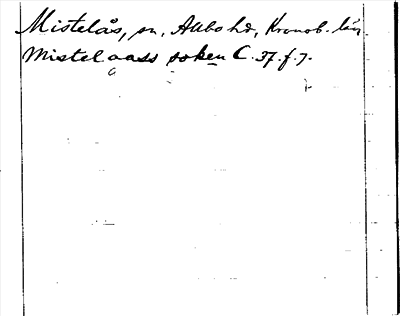 Mistelås, sn, Allbo hd, Kronob. län
Mistelaass soken C. 37. f. 7.